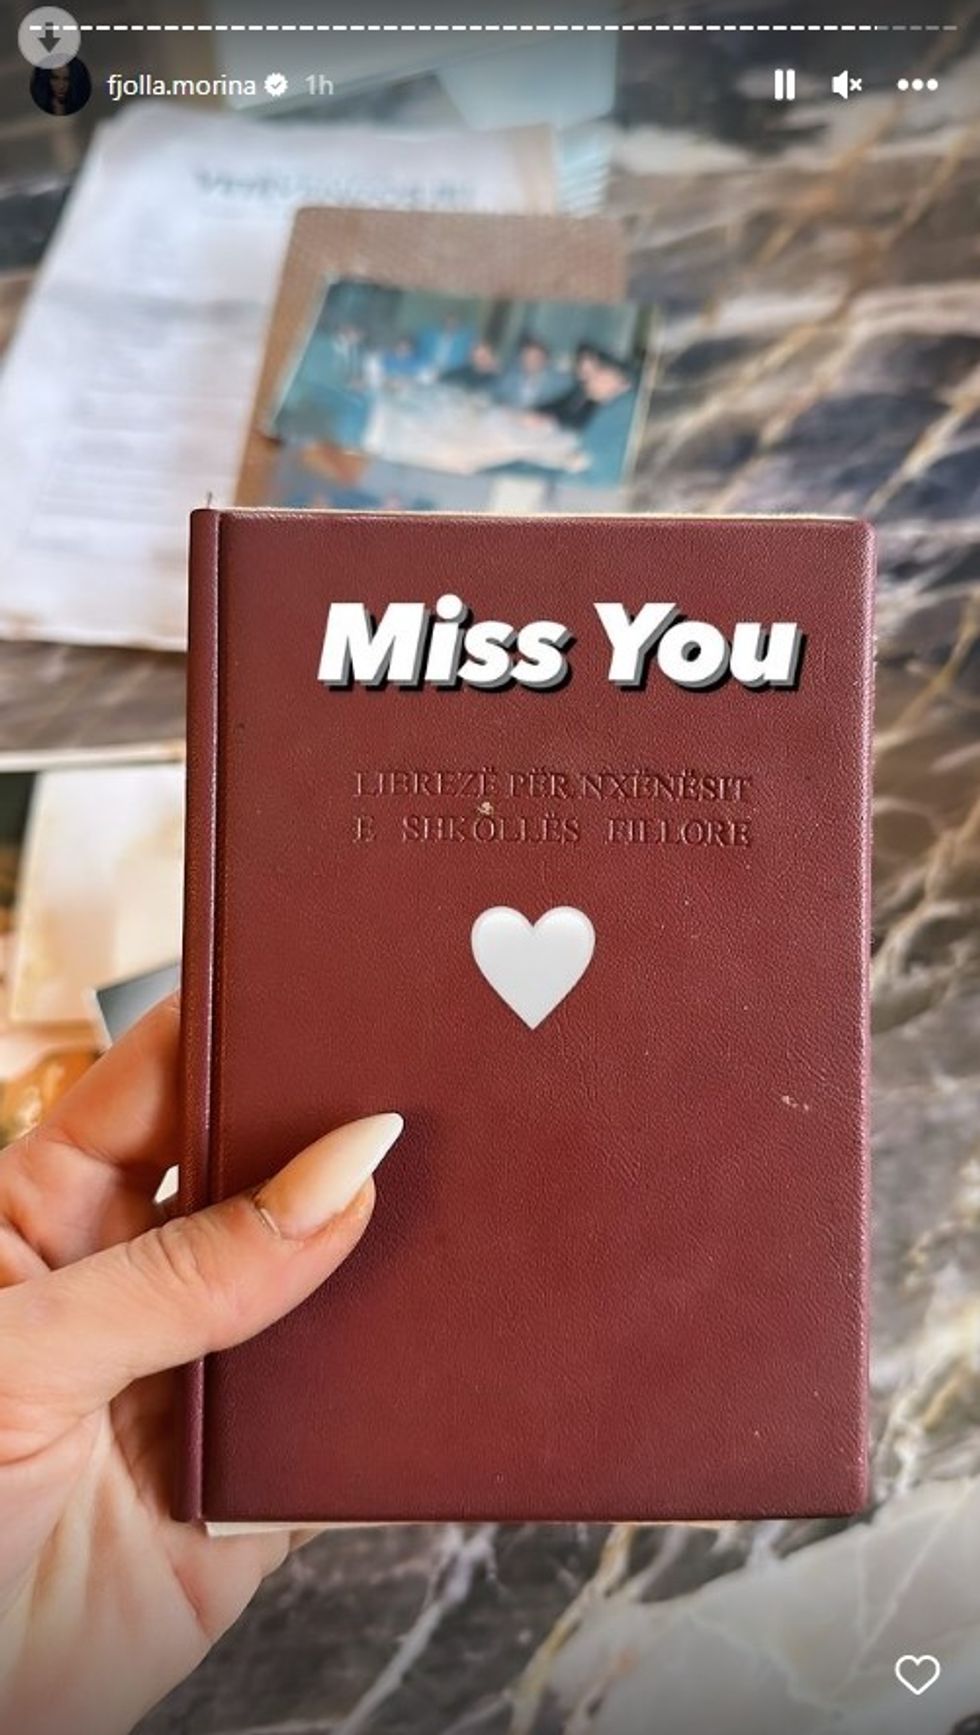 fjolla.morina 1h
Miss You
LIBREZË PËR NXËNËSIT
E SHKOLLËS FILLORE